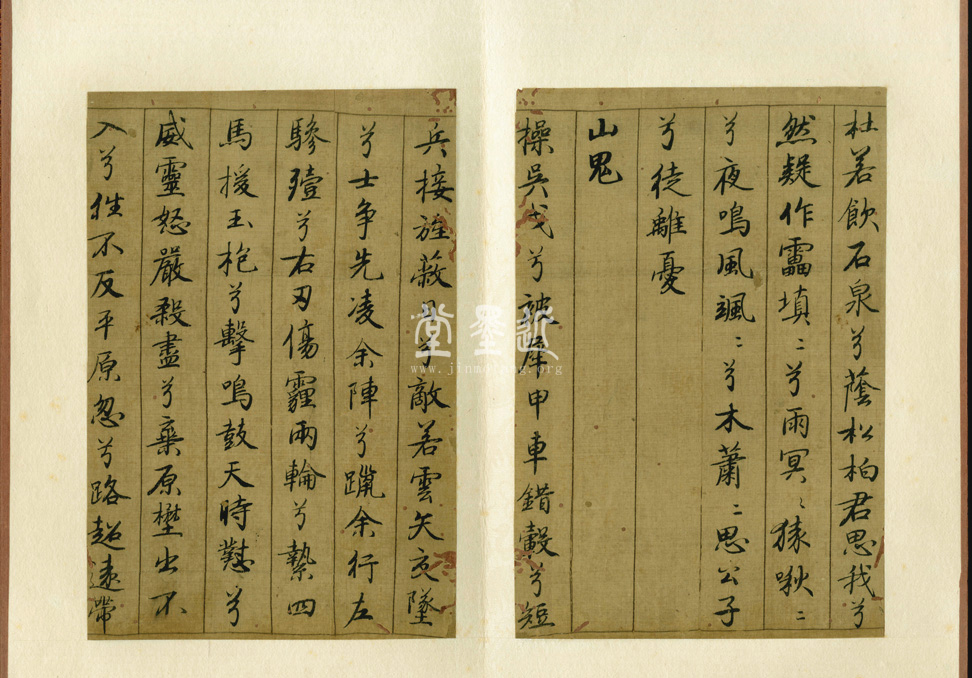 杜若飲石泉兮蔭松柏君思我兮
然疑作靁填〻兮雨冥〻猨啾〻
兮夜鳴風颯〻兮木蕭〻思公子
兮徒離憂
山鬼
操吳戈兮被犀甲車錯轂兮短
兵接旌蔽日兮敵若雲矢交墜
兮士争先凌余陣兮躐余行左
驂殪兮右刃傷霾兩輪兮縶四
馬援玉枹兮擊鳴鼓天時懟兮
威靈怒嚴殺盡兮棄原壄出不
入兮往不反平原忽兮路超遠帶
近墨堂
www.jinmotang.org